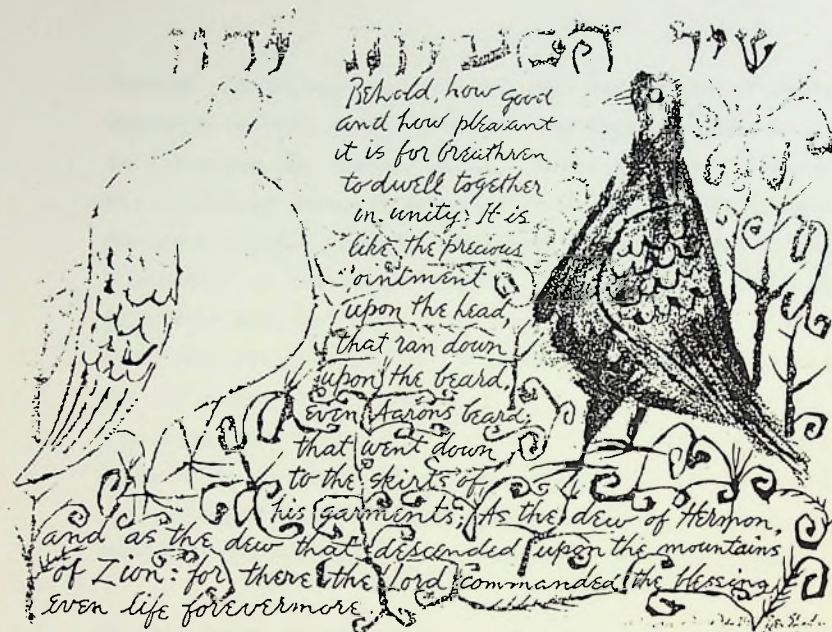 שיר המעלות לדוד
Behold, how good
and how pleasant
it is for breathren
to dwell together
in unity: It is
like the precious
ointment
upon the head,
that ran down
upon the beard,
even Aarons beard:
that went down
to the skirts of
his garments; As the dew of Hermon,
and as the dew that descended upon the mountains
of Zion: for there the Lord commanded the blessing,
even life forevermore.